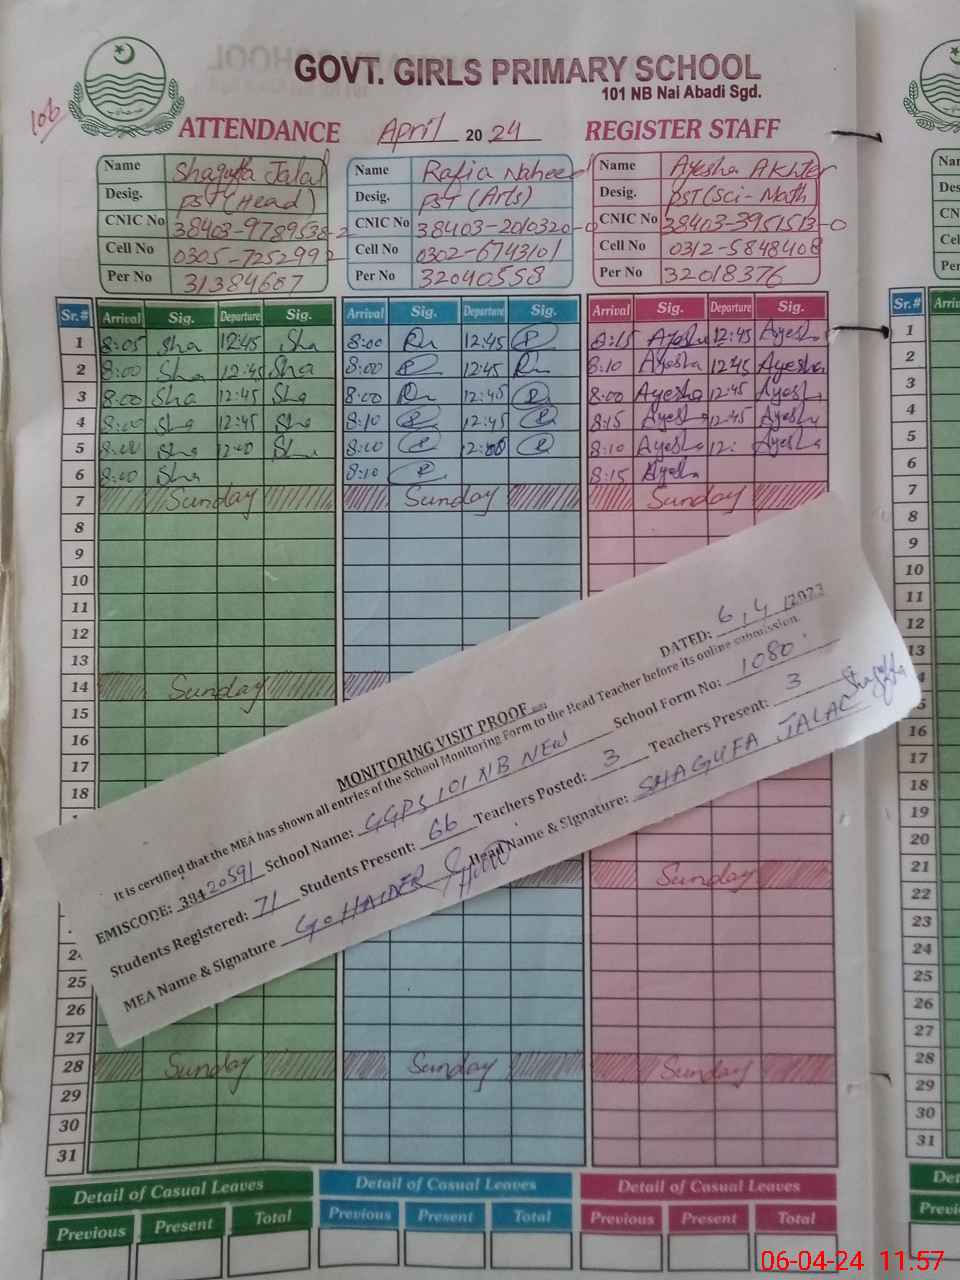 GOVT. GIRLS PRIMARY SCHOOL
101 NB Nai Abadi Sgd.
106
ATTENDANCE April 2024 REGISTER STAFF
Name Shagufta Jalal Name Rafia Naheed Name Ayesha Akhter
Desig. PST (Head) Desig. PST (Arts) Desig. PST (Sci-Math)
CNIC No 38403-9789538-2 CNIC No 38403-2010320-0 CNIC No 38403-3951513-0
Cell No 0305-7252992 Cell No 0302-6743101 Cell No 0312-5848408
Per No 31384687 Per No 32040558 Per No 32018376
Sr.# Arrival Sig. Departure Sig. Arrival Sig. Departure Sig. Arrival Sig. Departure Sig. Sr.#
1 8:05 Sha 12:45 Sha 8:00 12:45 8:15 Ayesha 12:45 Ayesha 1
2 8:00 Sha 12:45 Sha 8:00 12:45 8:10 Ayesha 12:45 Ayesha 2
3 8:00 Sha 12:45 Sha 8:00 12:45 8:00 Ayesha 12:45 Ayesha 3
4 8:00 Sha 12:45 Sha 8:10 12:45 8:15 Ayesha 12:45 Ayesha 4
5 8:00 Sha 12:00 Sha 8:00 12:00 8:10 Ayesha 12: Ayesha 5
6 8:00 Sha 8:10 8:15 Ayesha 6
7 Sunday Sunday Sunday 7
8 8
9 9
10 10
11 11
12 12
13 13
14 Sunday
16 16
17 17
18 18
19
20
21 Sunday
22
23
24
25 25
26 26
27 27
28 Sunday Sunday Sunday 28
29 29
30 30
31 31
MONITORING VISIT PROOF DATED: 6, 4 /2023
It is certified that the MEA has shown all entries of the School Monitoring Form to the Head Teacher before its online submission.
EMISCODE: 38420591 School Name: GGPS 101 NB NEW School Form No: 1080
Students Registered: 71 Students Present: 66 Teachers Posted: 3 Teachers Present: 3
MEA Name & Signature GOHAIDER Head Name & Signature: SHAGUFA JALAL Shagufta
Detail of Casual Leaves Detail of Casual Leaves Detail of Casual Leaves
Previous Present Total Previous Present Total Previous Present Total
06-04-24 11.57